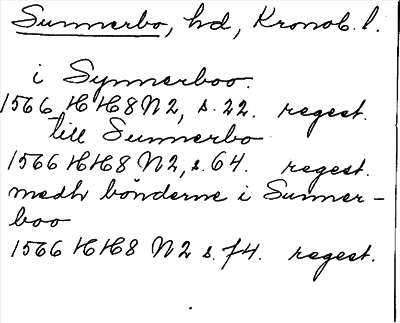 Sunnerbo, hd, Kronob. l.
i Synnerboo.
1566 HH8 N2, s. 22. regest.
till Sunnerbo
1566 HH8 N2, s. 64. regest.
medh bönderne i Sunner-
boo
1566 HH8 N2 s. 74. regest.